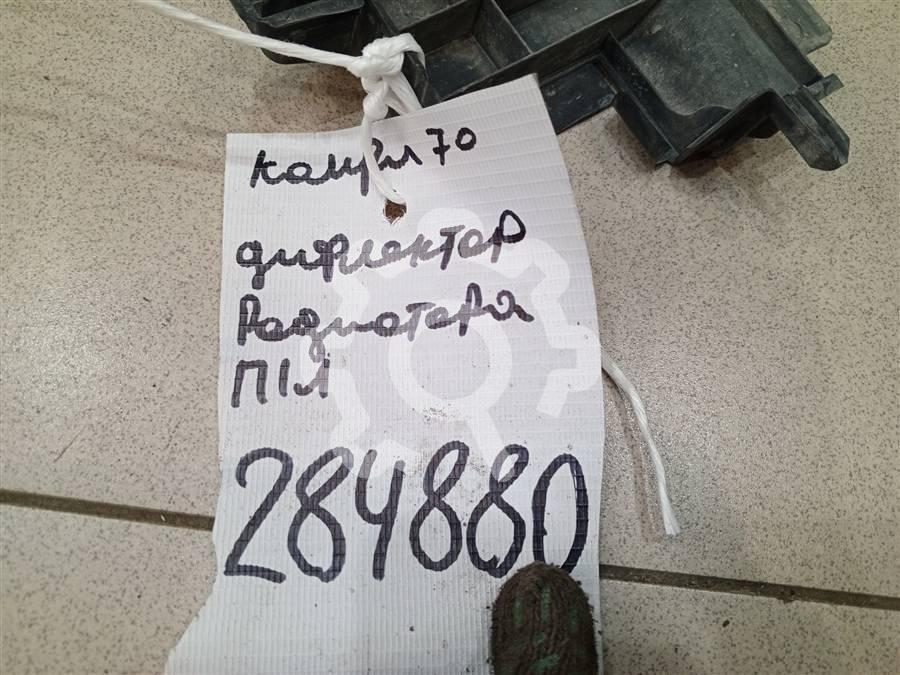 Камры 70
дифлектор
Радиатора
П1Л
284880